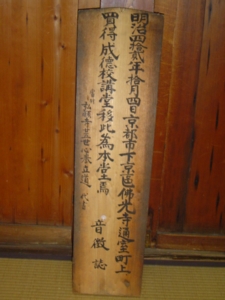 明治四拾貳年拾月四日京都市下京區佛光寺通室町上
買得成德校講堂移此為本堂焉
音徴誌